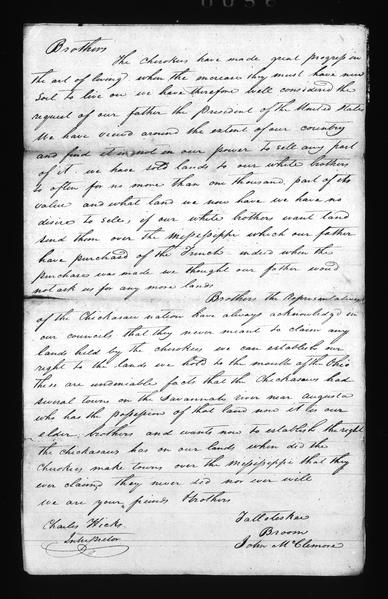 Brothers
The cherokees have made great progress in
the art of living when the increase they must have new
soil to live on we have therefore well considered the
request of our father the President of the United States
We have viewd around the extent of our country
and find it is not in our power to sell any part
of it we have sold lands to our white brothers
so often for no more than one thousand, part of its
value and what land we now have we have no
desire to selle, if our white brothers want land
send them over the Mississippi which our father
have purchasd of the French indeed when the
purchase was made we thought our father would
not ask us for any more lands
Brothers the Representatives
of the Chickasaw nation have always acknowledgd in
our councils that they never meant to claim any
lands held by the cherokees we can establish our
right to the lands we hold to the mouth of the Ohio
these are undeniable facts that the Chickasaws had
several towns on the Savannah river near Augusta
who has the possession of that land now it is our
elder, brothers and wants now to establish the right
the chickasaws has on our lands when did the
Cherokees make towns over the Mississippi that they
ever claimd they never did nor ever will
we are your friends & brothers
Charles Hicks Talloteskee
Interpreter Broom
John McLemore